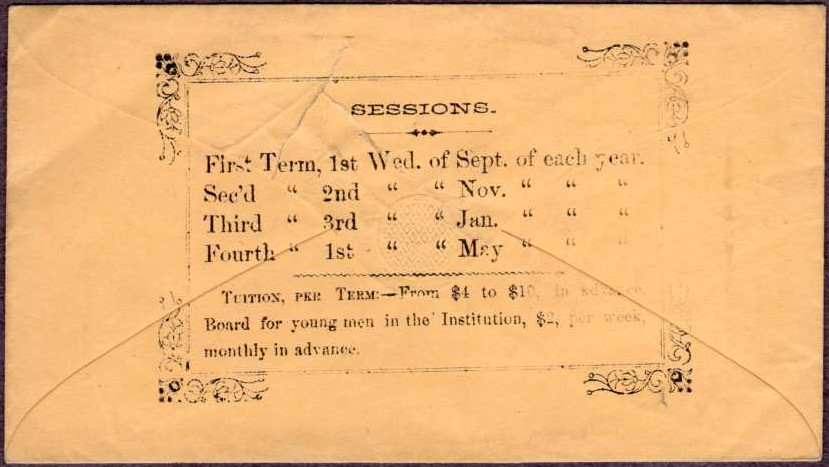 SESSIONS.
First Term, 1st Wed. of Sept. of each year.
Sec'd “ 2nd “ “ Nov. “ “ “
Third “ 3rd “ “ Jan. “ “ “
Fourth “ 1st “ “ May “ “ “
TUITION, PER TERM:—From $4 to $10, in advance.
Board for young men in the Institution, $2, per week,
monthly in advance.